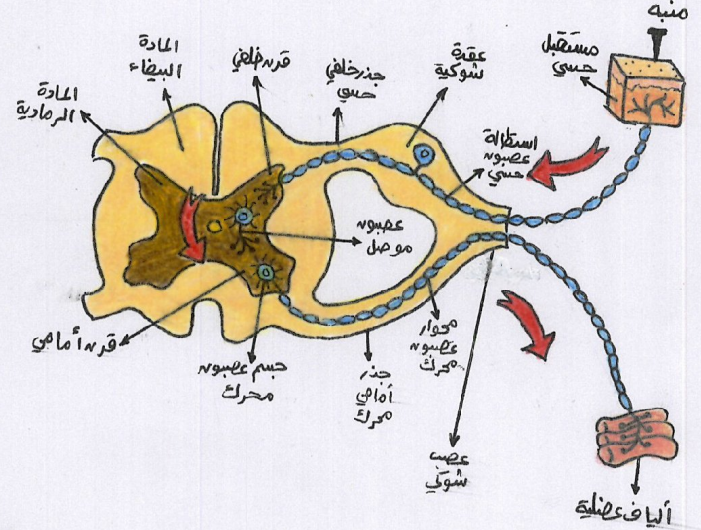 منبه
مستقبل
حسي
عقدة
شوكية
جذر خلفي
حسي
قرن خلفي
المادة
البيضاء
المادة
الرمادية
استطالة
عصبون
حسي
عصبون
موصل
محوار
عصبون
محرك
قرن أمامي
جسم عصبون
محرك
جذر
أمامي
محرك
عصب
شوكي
ألياف عضلية